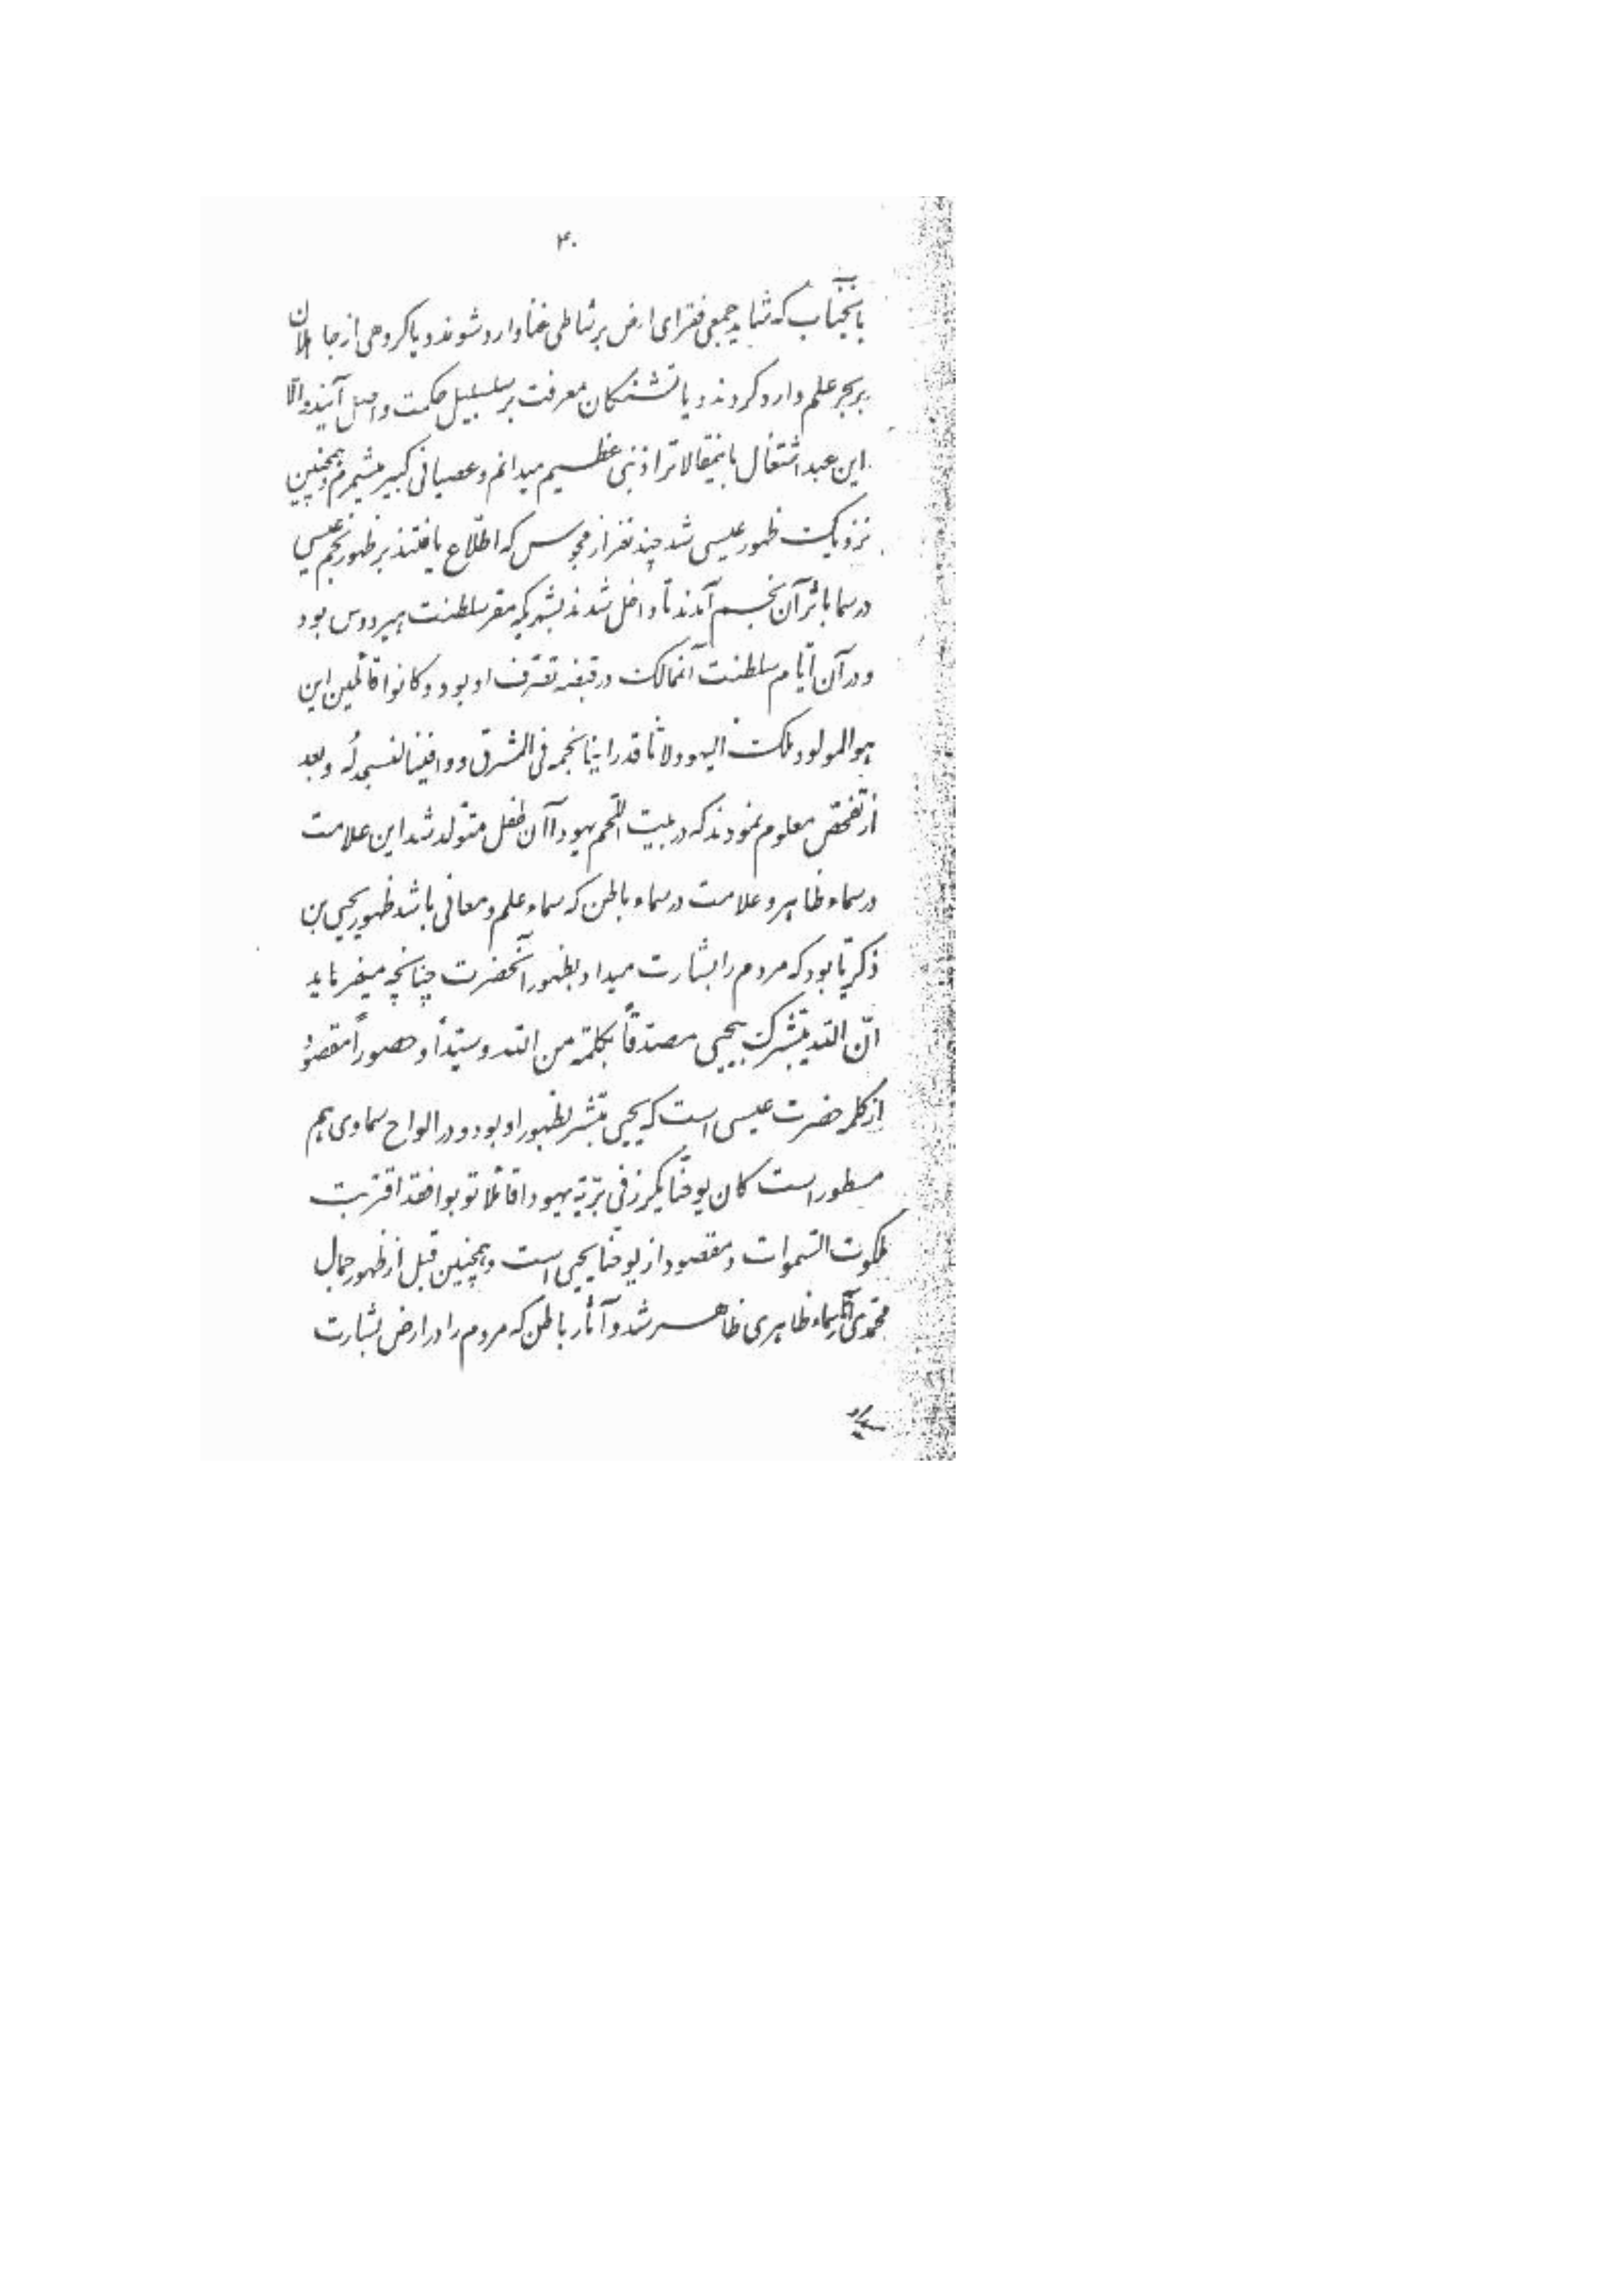 ۴۰
بآنجناب که شاید جمعی فقرای ارض بر شاطی غنا وارد شوند و یا گروهی از جاهلان
ببحر علم وارد گردند و یا تشنگان معرفت بر سلسبیل حکمت واصل آیند و الّا
این عبد اشتغال باینمقالات را ذنبی عظیم میدانم و عصیانی کبیر میشمرم و همچنین
نزدیک ظهور عیسی شد چند نفر از مجوس که اطّلاع یافتند بر ظهور نجم عیسی
در سما باثر آن نجم آمدند تا داخل شدند بشهریکه مقر سلطنت هیرودس بود
و در آن ایّام سلطنت آنممالک در قبضه تصّرف او بود و کانوا قائلین این
هو المولود ملک الیهود لانّا قد راینا نجمه فی المشرق و وافینا لنسجد لُه و بعد
از تفحّص معلوم نمودند که در بیت اللّحم یهودا آن طفل متولّد شد این علامت
در سماء ظاهر و علامت در سماء باطن که سماء علم و معانی باشد ظهور یحیی بن
ذکریّا بود که مردم را بشارت میداد بظهور آنحضرت چنانچه میفرماید
انّ اللّه یبّشرک بیحیی مصدّقاً بکلمته من اللّه و سیّداً و حصوراً مقصود
از کلمه حضرت عیسی است که یحیی مبّشر بظهور او بود و در الواح سماوی هم
مسطور است کان یوحنّا یکرز فی برّیّة یهودا قائلا توبوا فقد اقتربت
ملکوت السّموات و مقصود از یوحنّا یحیی است و همچنین قبل از ظهور جمال
محمّدی آثار سماء ظاهری ظاهر شد و آثار باطن که مردم را در ارض بشارت